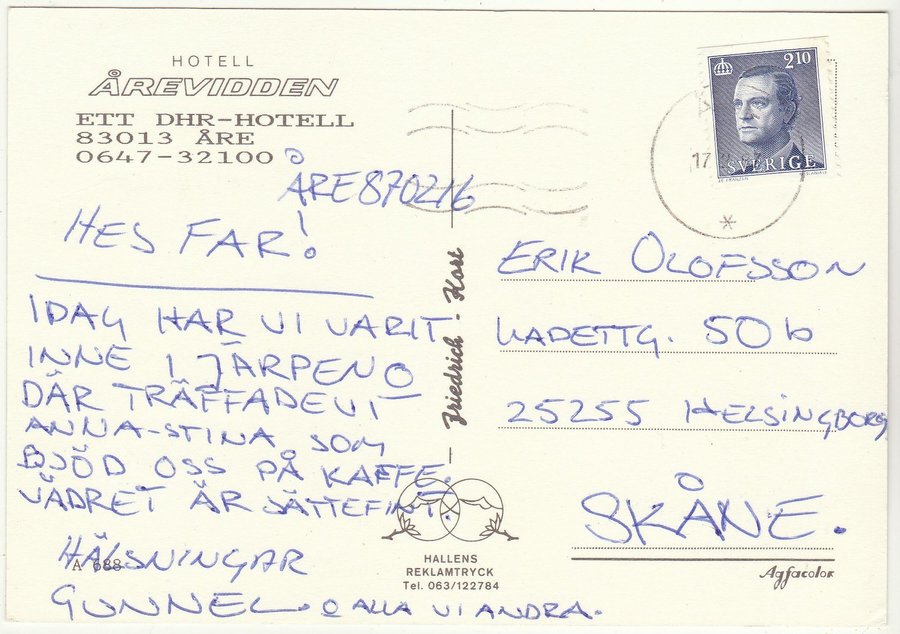 HOTELL
ÅREVIDDEN
ETT DHR-HOTELL
83013 ÅRE
0647-32100
ÅRE 870216
HEJ FAR!
IDAG HAR VI VARIT
INNE I JÄRPEN O
DÄR TRÄFFADE VI
ANNA-STINA SOM
BJÖD OSS PÅ KAFFE.
VÄDRET ÄR JÄTTEFINT.
HÄLSNINGAR
GUNNEL. O ALLA VI ANDRA.
A 688
Friedrich - Kort
HALLENS
REKLAMTRYCK
Tel. 063/122784
2.10
SVERIGE
17
ERIK OLOFSSON
KADETTG. 50b
25255 HELSINGBORG
SKÅNE.
Agfacolor